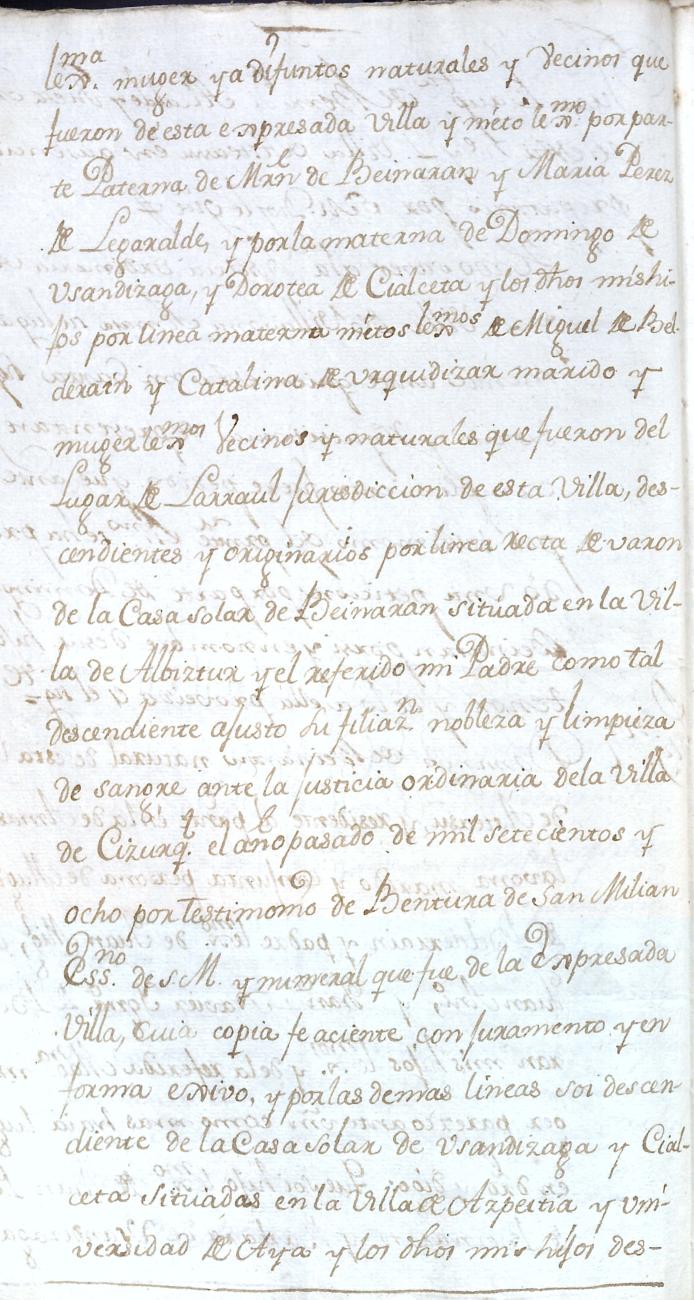 lexma. muger ya difuntos naturales y Vecinos que
fueron de esta expresada Villa y nieto lexmo. por par-
te Paterna de Mrn de Beinaran y Maria Perez
de Legaralde, y por la materna de Domingo de
Usandizaga, y Dorotea de Cialceta y los dhos mis hi-
jos por linea materna nietos lexmos de Miguel de Bel-
derain y Catalina de Urquidizar marido y
muger lexmos Vecinos y naturales que fueron del
Lugar de Larraul jurisdiccion de esta Villa, des-
cendientes y originarios por linea recta de varon
de la Casa solar de Beinaran situada en la Vil-
la de Albiztur y el referido mi Padre como tal
descendiente ajusto su filiazn nobleza y limpieza
de sangre ante la justicia ordinaria de la Villa
de Cizurql. el ano pasado de mil setecientos y
ocho por testimonio de Bentura de San Milian
Essno. de s. M. y numeral que fue, de la expresada
Villa, cuia copia feaciente con juramento y en
forma exivo, y por las demas lineas soi descen-
diente de la Casa solar de Usandizaga y Cial-
ceta situadas en la Villa de Azpeitia y Uni-
versidad de Aya y los dhos mis hijos des-